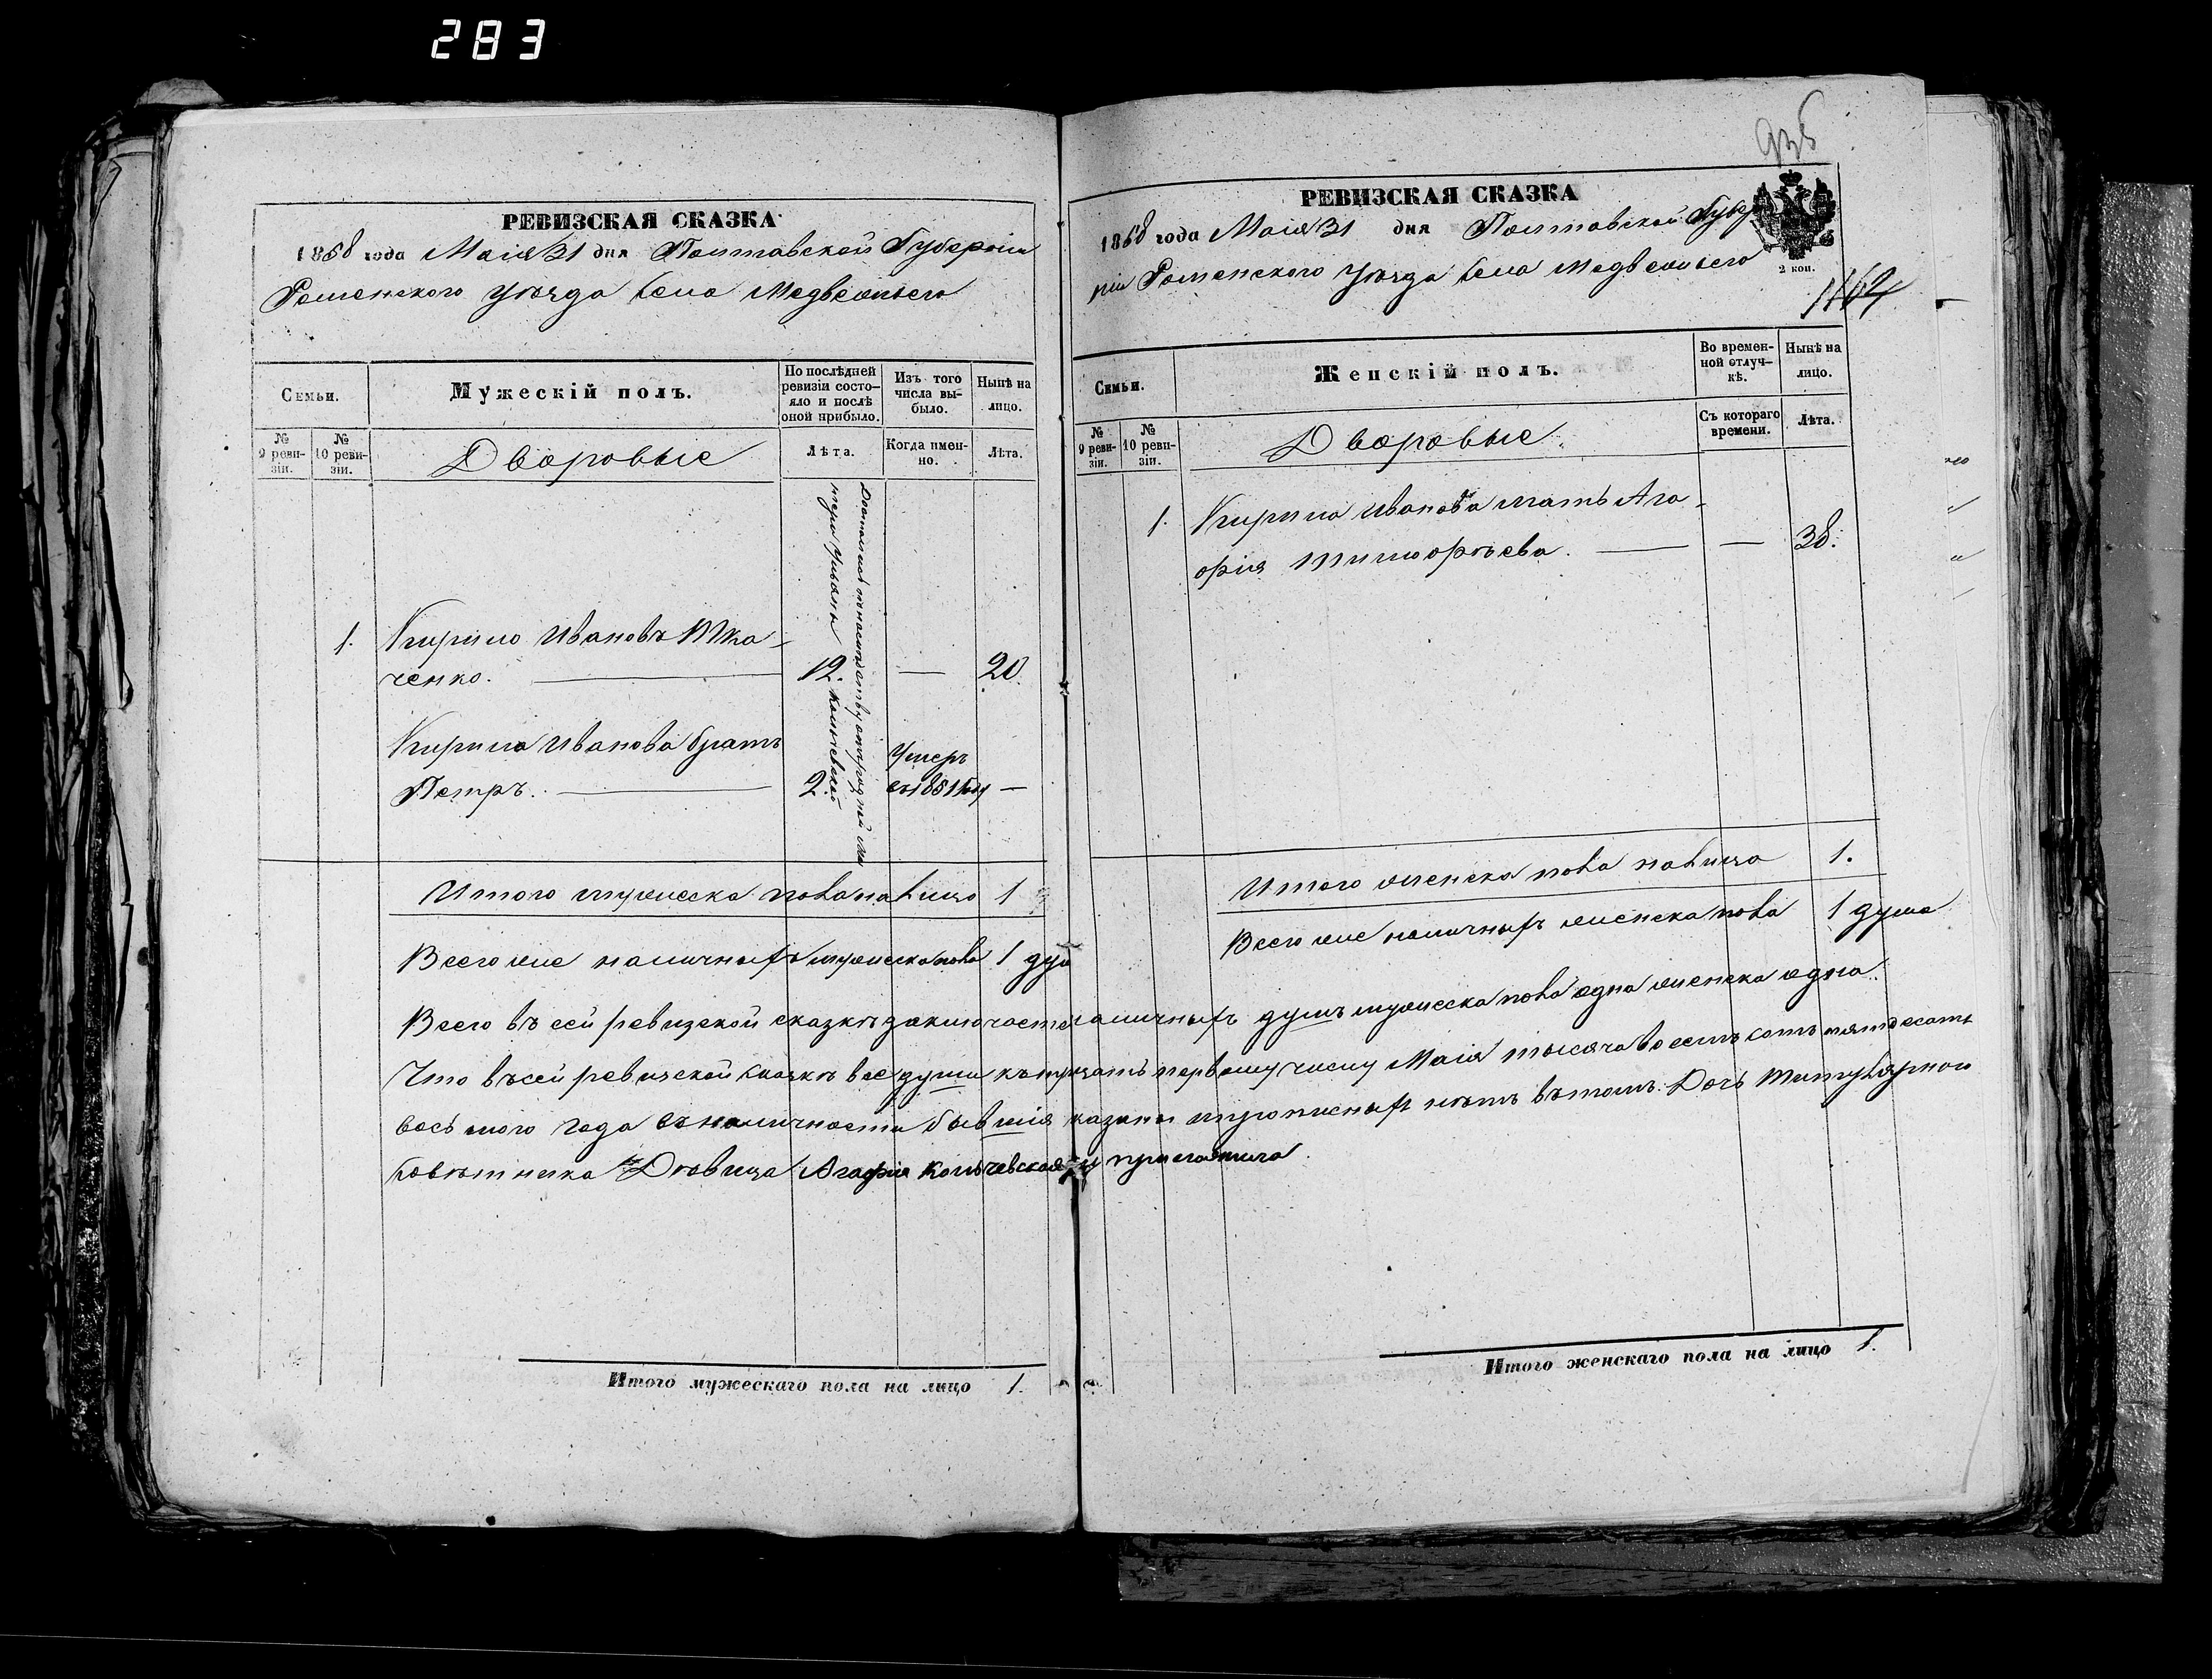 283
РЕВИЗСКАЯ СКАЗКА
1858 года Маія 31 дня Полтавской Губерніи
Роменского уѣзда Села Медвежьего
Семьи.
Мужескій полъ.
По послѣдней ревизіи состояло и послѣ оной прибыло.
Изъ того числа выбыло.
Нынѣ на лицо.
№ 9 ревизіи.
№ 10 ревизіи.
Дворовые
Лѣта.
Когда именно.
Лѣта.
Достались по наслѣдству отъ родной ма
тери Ульяны Колчевской
1. Кирило Ивановъ Тка-
ченко. 12. — 20.
Кирила Иванова братъ
Петръ. 2. Умеръ въ 1851 году —
Итого мужеска пола на лицо 1
Всего же наличныхъ мужеска пола 1 душ
РЕВИЗСКАЯ СКАЗКА
1858 года Маія 31 дня Полтавской Губер
ніи Роменского уѣзда Села Медвежьего
2 коп.
Семьи.
Женскій полъ.
Во временной отлучкѣ.
Нынѣ на лицо.
№ 9 ревизіи.
№ 10 ревизіи.
Дворовые
Съ котораго времени.
Лѣта.
1. Кирила Иванова мать Ага-
фія Тимофѣева. — — 38.
Итого женска пола налицо 1.
Всего же наличныхъ женска пола 1 душа
Всего въ сей ревизской сказкѣ заключается наличныхъ душъ мужеска пола одна женска одна.
Что въ сей ревизской сказкѣ все души къ тридцать первому числу Маія тысяча восемь сотъ пятдесятъ
восьмого года въ наличности бывшія показаны и прописныхъ нѣтъ въ томъ: Дочь Титулярного
Совѣтника Дѣвица Агафія Колчевская приложила
Итого мужескаго пола на лицо 1.
Итого женскаго пола на лицо 1.